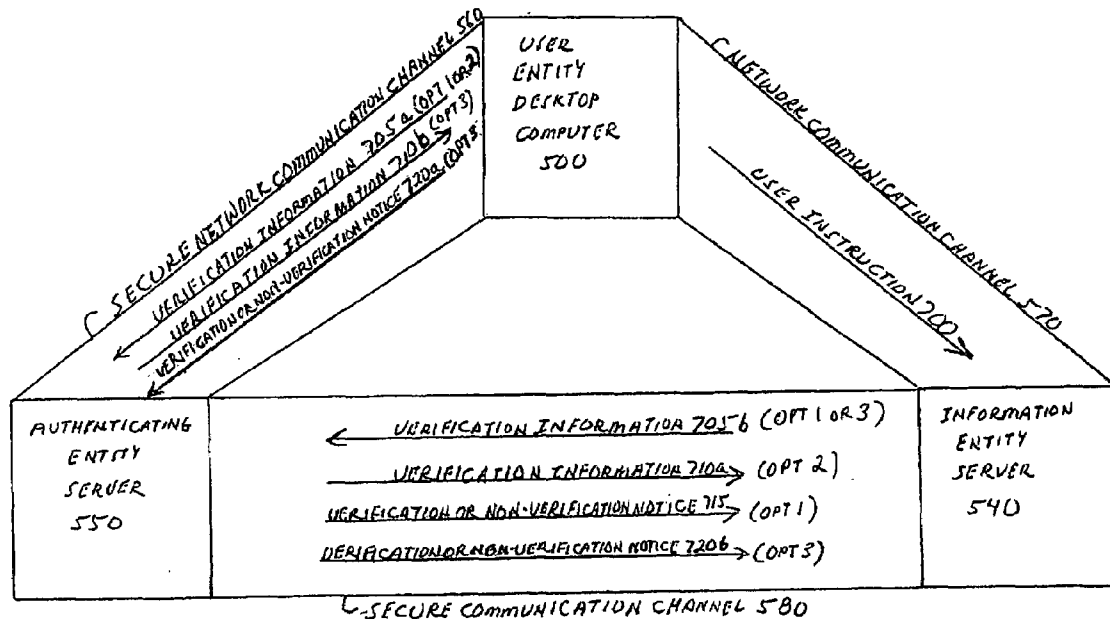 USER
ENTITY
DESKTOP
COMPUTER
500
SECURE NETWORK COMMUNICATION CHANNEL 560
VERIFICATION INFORMATION 705a (OPT 1 OR 2)
VERIFICATION INFORMATION 710b (OPT 3)
VERIFICATION OR NON-VERIFICATION NOTICE 720a (OPT 3
NETWORK COMMUNICATION CHANNEL 570
USER INSTRUCTION 700
AUTHENTICATING
ENTITY
SERVER
550
VERIFICATION INFORMATION 705b (OPT 1 OR 3)
VERIFICATION INFORMATION 710a (OPT 2)
VERIFICATION OR NON-VERIFICATION NOTICE 715 (OPT 1)
VERIFICATION OR NON-VERIFICATION NOTICE 720b (OPT 3)
INFORMATION
ENTITY
SERVER
540
SECURE COMMUNICATION CHANNEL 580